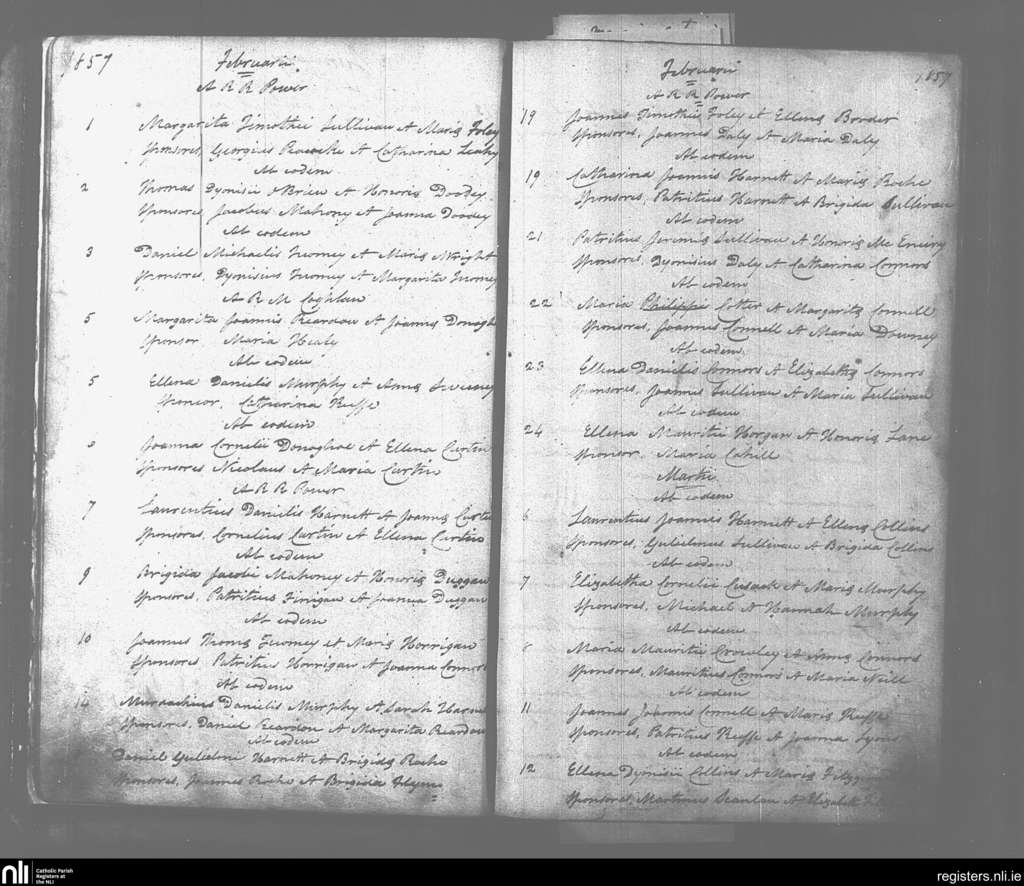 1857 Februarii
A R R Power
1 Margarita Timothii Sullivan et Mariæ Foley
Sponsores, Georgius Peacocke et Catharina Leahy
Ab eodem
2 Thomas Dyonisii O'Brien et Honoriæ Doodey
Sponsores Jacobus Mahony et Joanna Doodey
Ab eodem
3 Daniel Michaelis Twomey et Mariæ Wright
Sponsores, Dyonisius Twomey et Margarita Twomey
A R M Coghlan
5 Margarita Joannis Reardon et Joannæ Donogh
Sponsor Maria Healy
Ab eodem
5 Ellena Danielis Murphy et Annæ Sweeney
Sponsor, Catharina Keeffe
Ab eodem
Joanna Cornelii Donoghoe et Ellena Curtin
Sponsores Nicolaus et Maria Curtin
A R R Power
7 Laurentius Danielis Harnett et Joannæ Curtin
Sponsores, Cornelius Curtin et Ellena Curtin
Ab eodem
9 Brigida Jacobi Mahoney et Honoriæ Duggan
Sponsores, Patritius Finigan et Joanna Duggan
Ab eodem
10 Joannes Thomæ Twomey et Mariæ Horrigan
Sponsores Patritius Horrigan et Joanna Connors
Ab eodem
14 Danielis Murphy et Sarah
Sponsores, Daniel Reardon et Margarita Reardon
Ab eodem
Daniel Gulielmi Harnett et Brigidæ Roche
Sponsores, Joannes Roche et Brigida Flynn
Februarii 1857
A R R Power
19 Joannes Timothii Foley et Ellenæ Broder
Sponsores, Joannes Daly et Maria Daly
Ab eodem
19 Catharina Joannis Harnett et Mariæ Roche
Sponsores, Patritius Harnett et Brigida Sullivan
Ab eodem
21 Patritius Jeremiæ Sullivan et Honoriæ Mc Eneiry
Sponsores, Dyonisius Daly et Catharina Connors
Ab eodem
22 Maria Philippi Cotter et Margaritæ Connell
Sponsores, Joannes Connell et Maria Downey
Ab eodem
23 Ellena Danielis Connors et Elizabethæ Connors
Sponsores, Joannes Sullivan et Maria Sullivan
Ab eodem
24 Ellena Mauritii Horgan et Honoriæ Lane
Sponsor, Maria Cahill
Martii
Ab eodem
6 Laurentius Joannis Harnett et Ellenæ Collins
Sponsores, Gulielmus Sullivan et Brigida Collins
Ab eodem
7 Elizabetha Cornelii Cusack et Mariæ Murphy
Sponsores, Michael et Hannah Murphy
Ab eodem
Maria Mauritii Crowley et Annæ Connors
Sponsores, Mauritius Connors et Maria Neill
Ab eodem
11 Joannes Joannis Connell et Mariæ Keeffe
Sponsores, Patritius Keeffe et Joanna Lyons
Ab eodem
12 Ellena Dyonisii Collins et Mariæ
Sponsores, Martinus Scanlan et Elizabeth
nli
Catholic Parish
Registers at
the NLI
registers.nli.ie